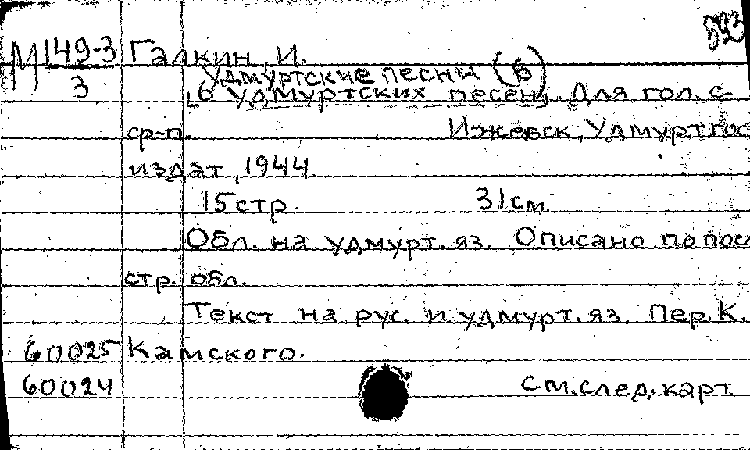 893
М 149-3 Галкин, И.
3 Удмуртские песни (6)
[6 удмуртских песен]. Для гол. с
ср-п. Ижевск, Удмуртгос
издат, 1944.
15 стр. 31 см.
Обл. на удмурт. яз. Описано по посл
стр. обл.
Текст на рус. и удмурт. яз. Пер. К.
60025 Камского.
60024 См. след. карт.